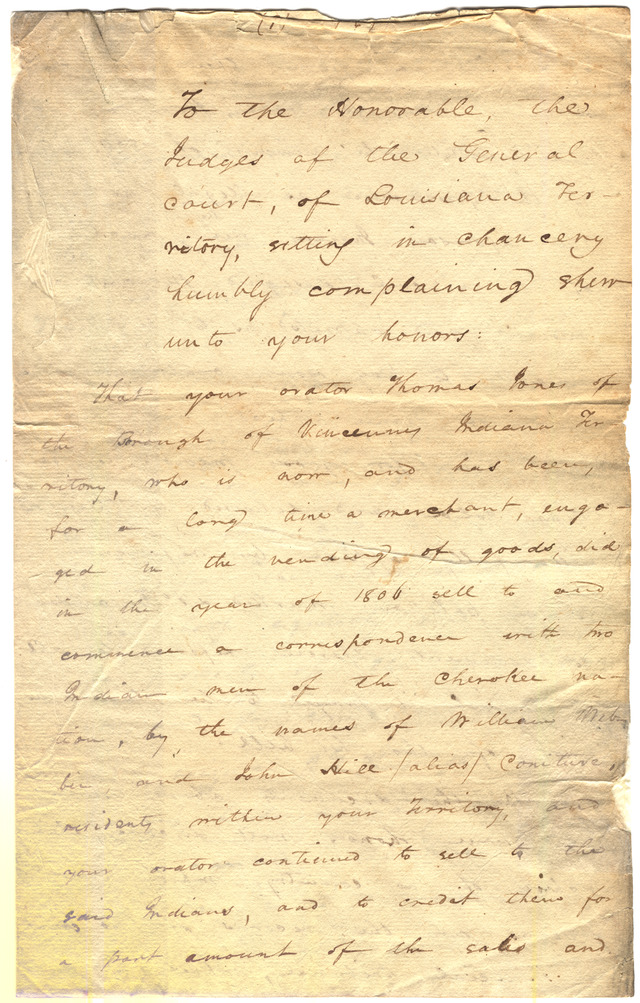 To the Honorable, the
Judges of the General
court, of Louisiana Ter-
ritory, sitting in chancery
humbly complaining shew
unto your honors:
That your orator Thomas Jones of
the Borough of Vincennes Indiana Ter-
ritory, who is now, and has been,
for a long time a merchant, enga-
ged in the vending of goods, did
in the year of 1806 sell to and
commence a correspondence with two
Indian men of the Cherokee na-
tion, by, the names of William Web-
ber, and John Hill (alias) Coniture,
residents within your Territory, and
your orator continued to sell to the
said Indians, and to credit them for
a part amount of the sales and